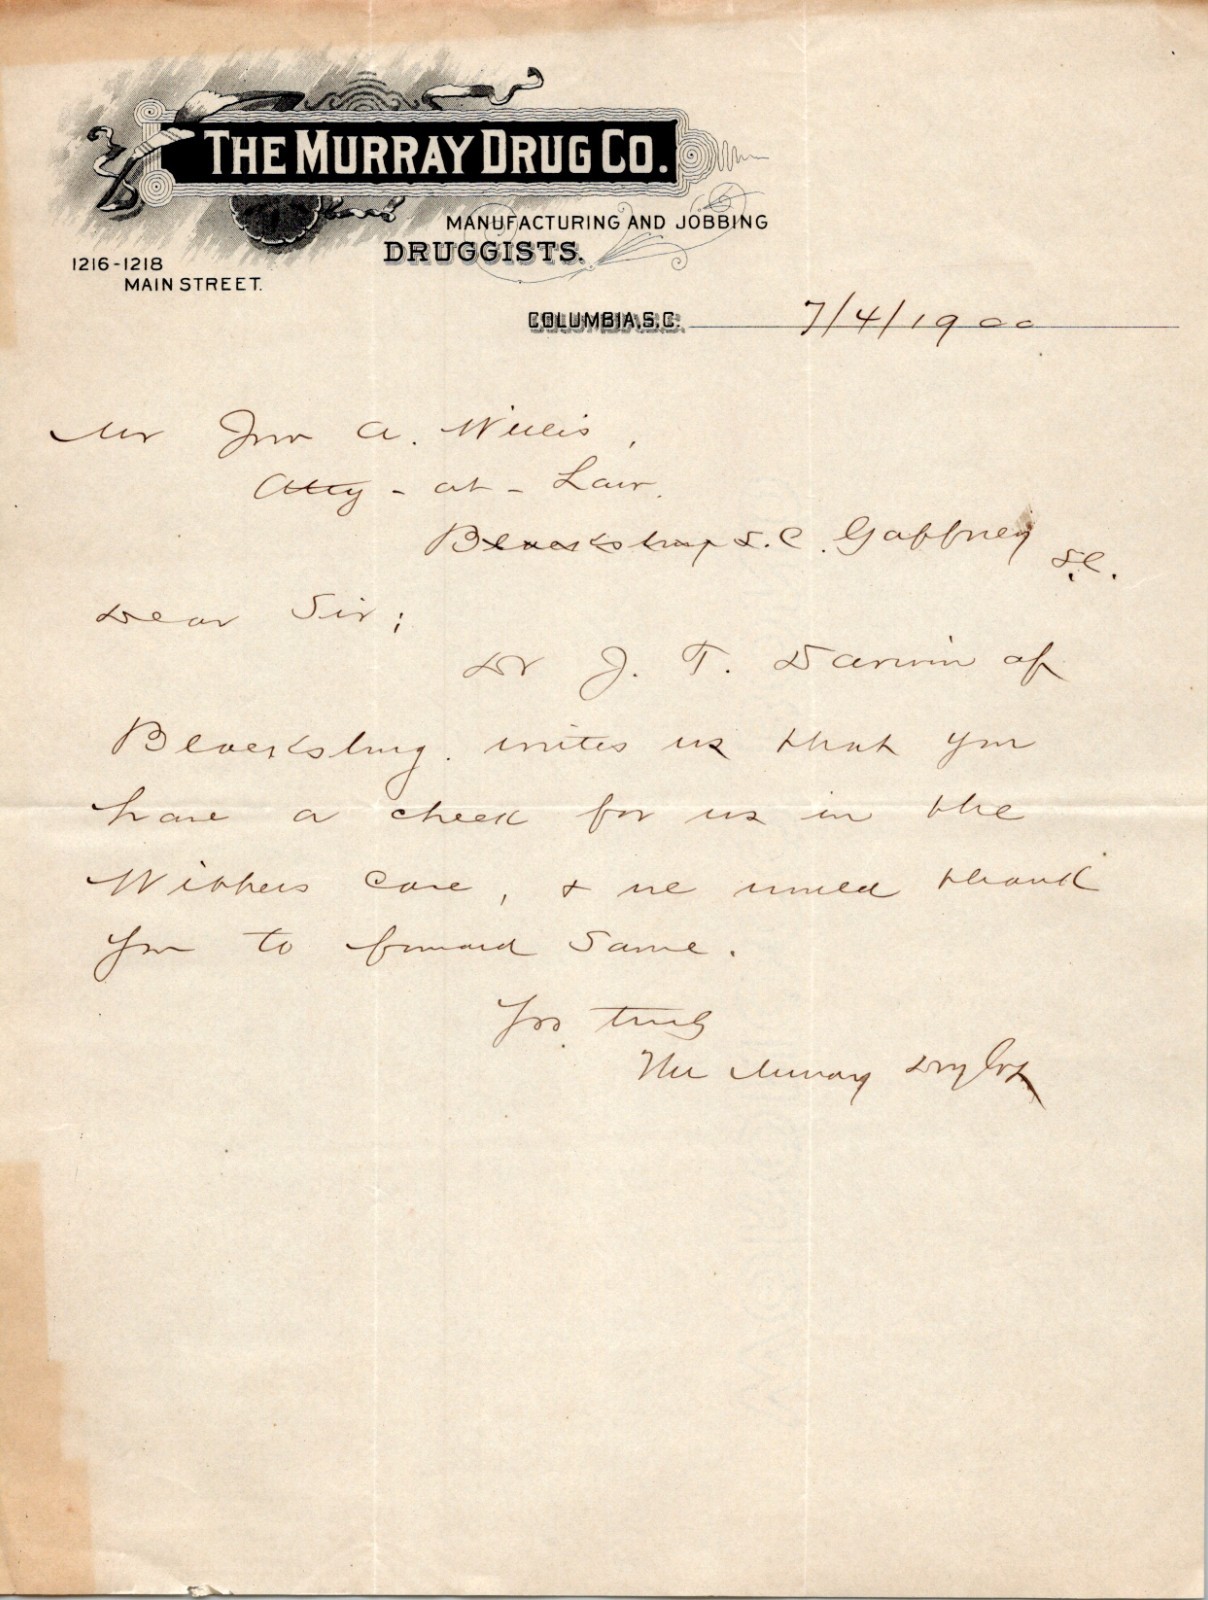 THE MURRAY DRUG CO.
MANUFACTURING AND JOBBING
DRUGGISTS.
1216-1218
MAIN STREET.
COLUMBIA, S.C. 7/4/1900
Mr Jno A. Willis,
Atty-at-Law.
Blacksburg S.C. Gaffney
S.C.
Dear Sir;
Dr J. T. Darwin of
Blacksburg. writes us that you
have a check for us in the
Withers Case, & we would thank
you to forward same.
Yrs. truly
The Murray Drug Co